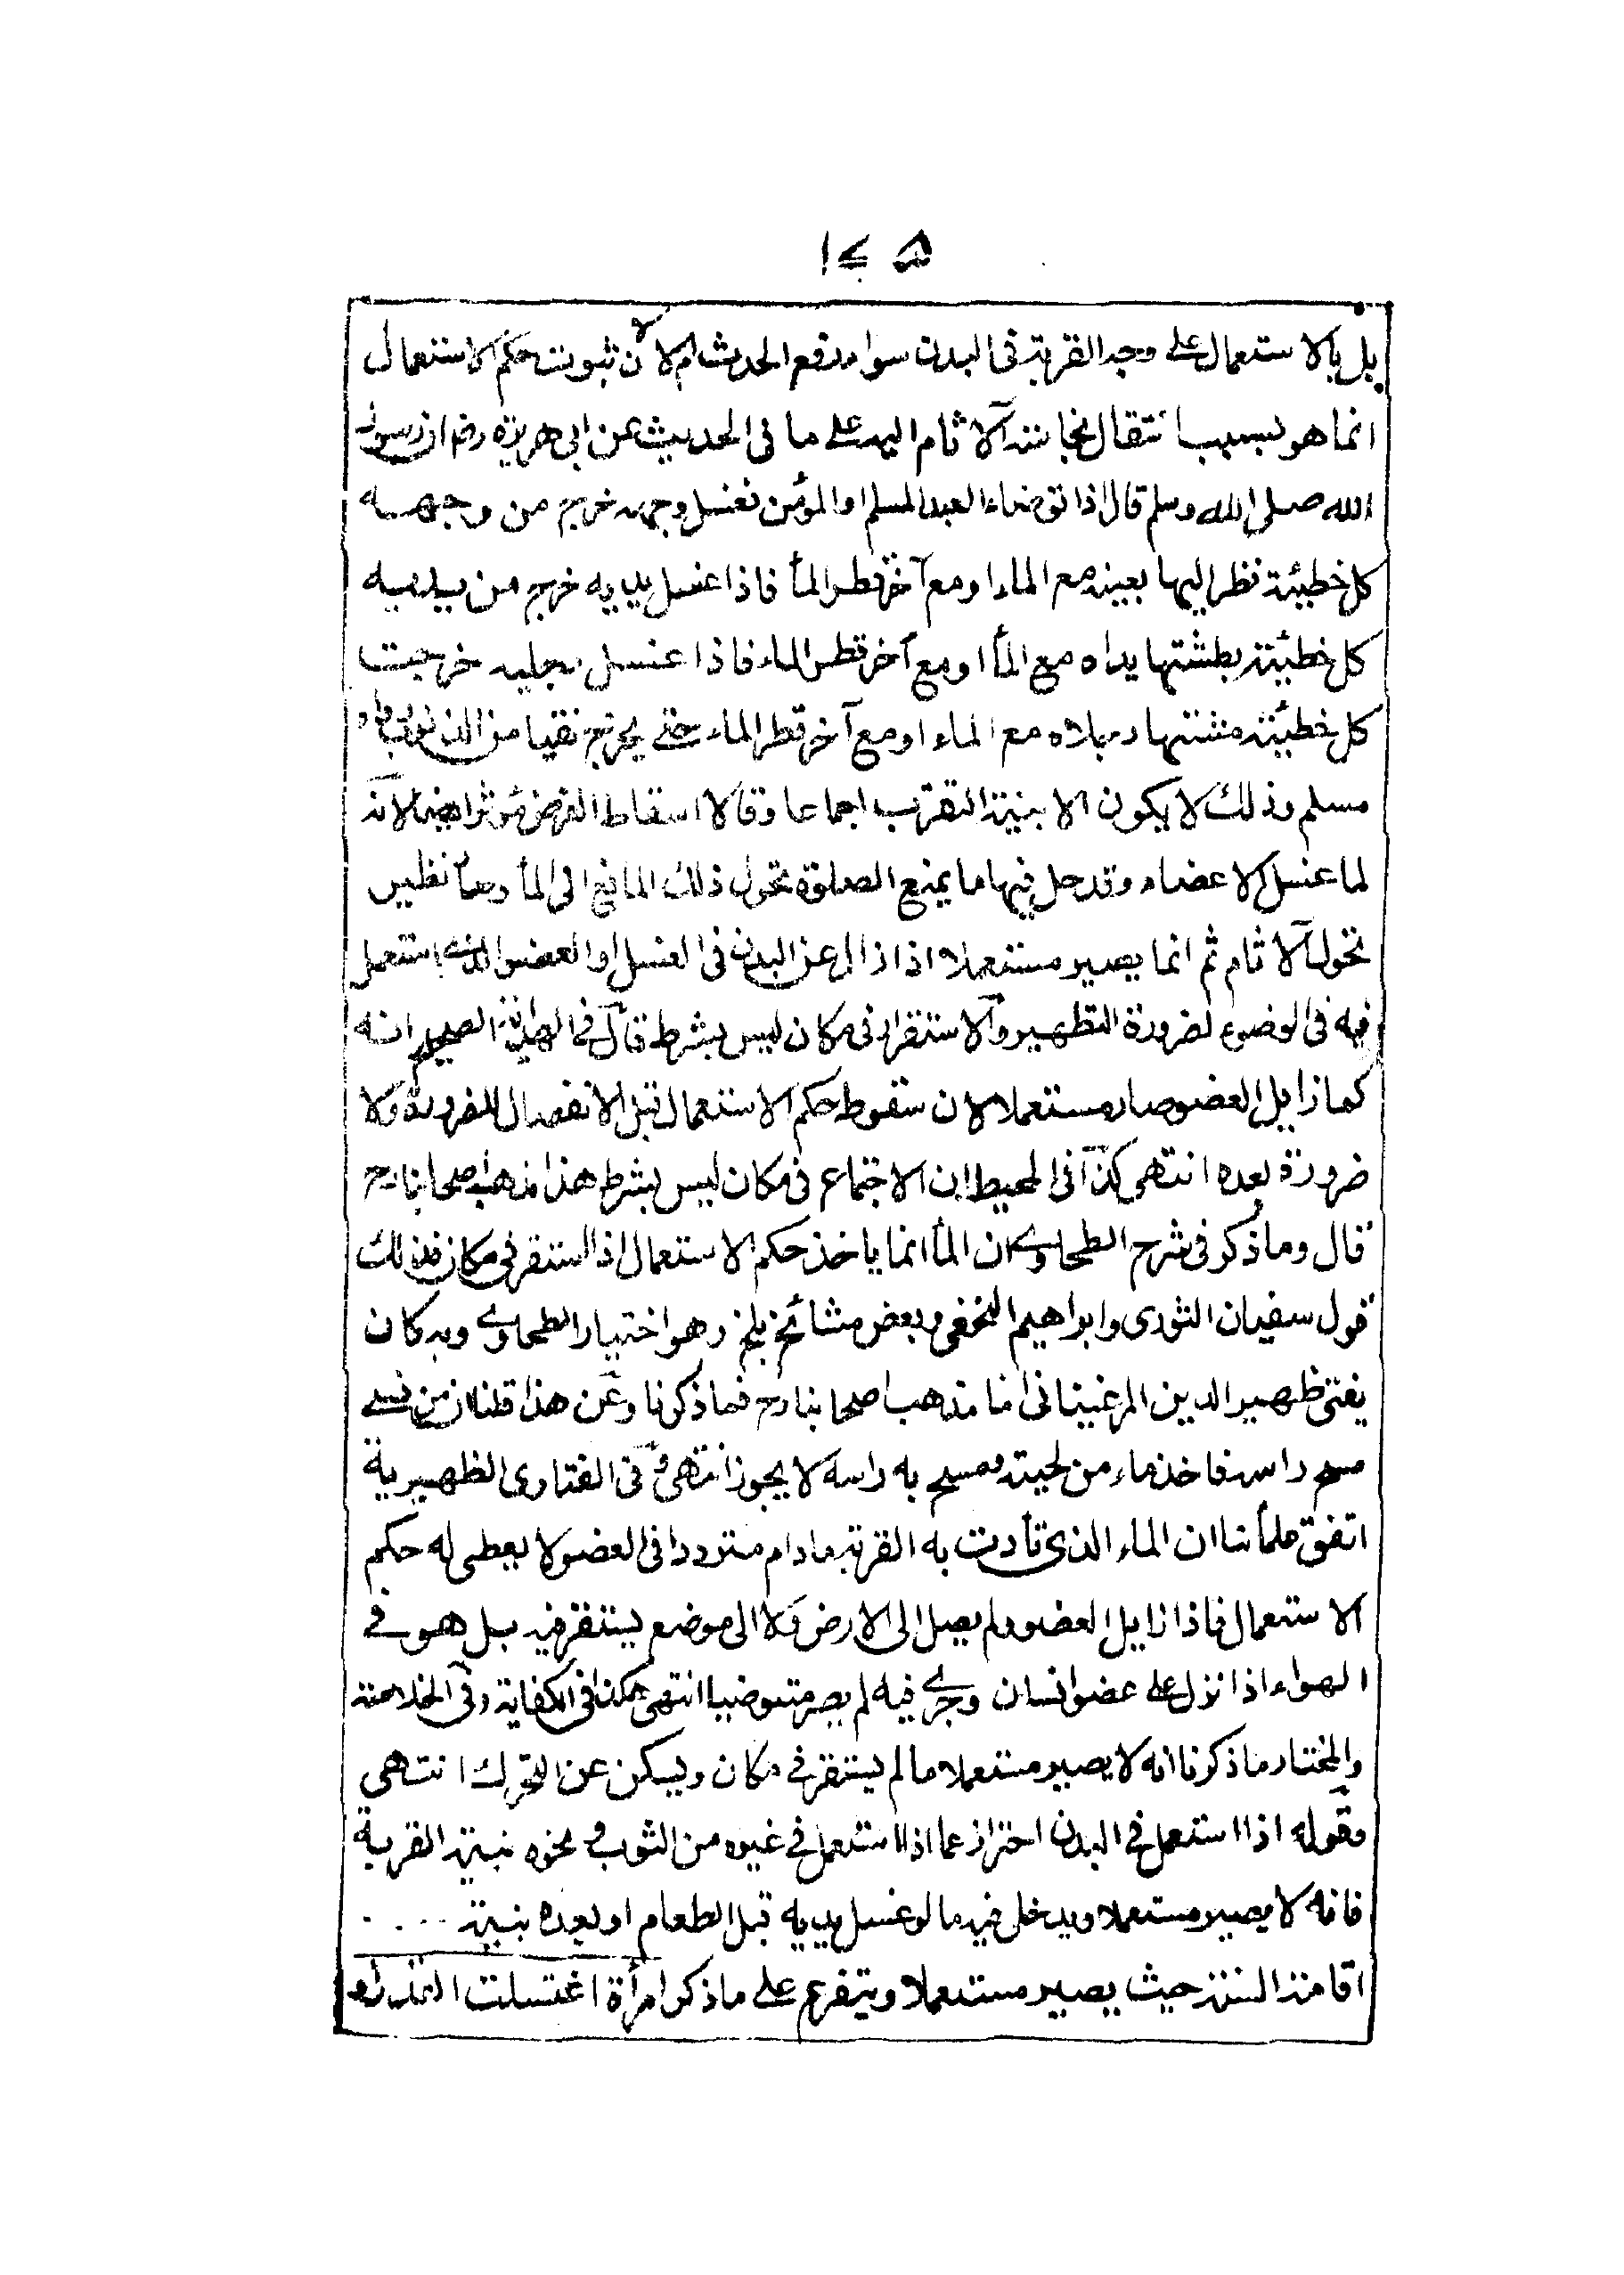 ١٤٥
بل بالاستعمال على وجه القربة فى البدن سواء رفع الحدث ام لا لان ثبوت حكم الاستعمال
انما هو بسبب انتقال نجاسة الآثام اليه على ما فى الحديث عن ابى هريرة رض ان رسول
الله صلى الله وسلم قال اذا توضاء العبد المسلم او المؤمن فغسل وجهه خرج من وجهه
كل خطيئة نظر اليها بعينه مع الماء او مع آخر قطر المأ فاذا غسل يديه خرج من يديه
كل خطيئة بطشتها يداه مع المأ او مع آخر قطر الماء فاذا غسل رجليه خرجت
كل خطيئة مشتها رجلاه مع الماء او مع آخر قطر الماء حتى يخرج نقيا من الذنوب رواه
مسلم وذلك لا يكون الا بنية التقرب اجماعا وقالا اسقاط الفرض مؤثر ايضا لانه
لما غسل الاعضاء وقد حل فيها ما يمنع الصلوة تحول ذلك المانع الى المأ وصار نظير
تحول الآثام ثم انما يصير مستعملا اذا زال عن البدن فى الغسل او العضو الذى استعمل
فيه فى الوضوء لضرورة التطهير والاستقرار فى مكان ليس بشرط قال فى الهداية الصحيح انه
كما زايل العضو صار مستعملا لان سقوط حكم الاستعمال قبل الانفصال للضرورة ولا
ضرورة بعده انتهى كذا فى المحيط ان الاجتماع فى مكان ليس بشرط هذا مذهب اصحابنا رح
قال وما ذكر فى شرح الطحاوى ان المأ انما ياخذ حكم الاستعمال اذا استقر فى مكان فذلك
قول سفيان الثورى وابراهيم النخعى وبعض مشائخ بلخ وهو اختيار الطحاوى وبه كان
يفتى ظهير الدين المرغينانى اما مذهب اصحابنا رح فما ذكرنا وعن هذا قلنا ان من نسى
مسح راسه فاخذ ماء من لحيته ومسح به راسه لا يجوز انتهى و فى الفتاوى الظهيرية
اتفق علمأنا ان الماء الذى تأدت به القربة مادام مترددا فى العضو لا يعطى له حكم
الاستعمال فاذا زايل العضو ولم يصل الى الارض ولا الى موضع يستقر فيه بل هو فى
الهواء اذا نزل على عضو انسان وجرى فيه لم يصر متوضيا انتهى هكذا فى الكفاية وفى الخلاصة
والمختار ما ذكرنا انه لا يصير مستعملا ما لم يستقر فى مكان ويسكن عن التحرك انتهى
وقوله اذا استعمل فى البدن احتراز عما اذا استعمل فى غيره من الثوب و نحوه بنية القربة
فانه لا يصير مستعملا ويدخل فيه ما لو غسل يديه قبل الطعام او بعده بنية ....
اقامة السنة حيث يصير مستعملا ويتفرع على ما ذكر امرأة اغتسلت القدر او